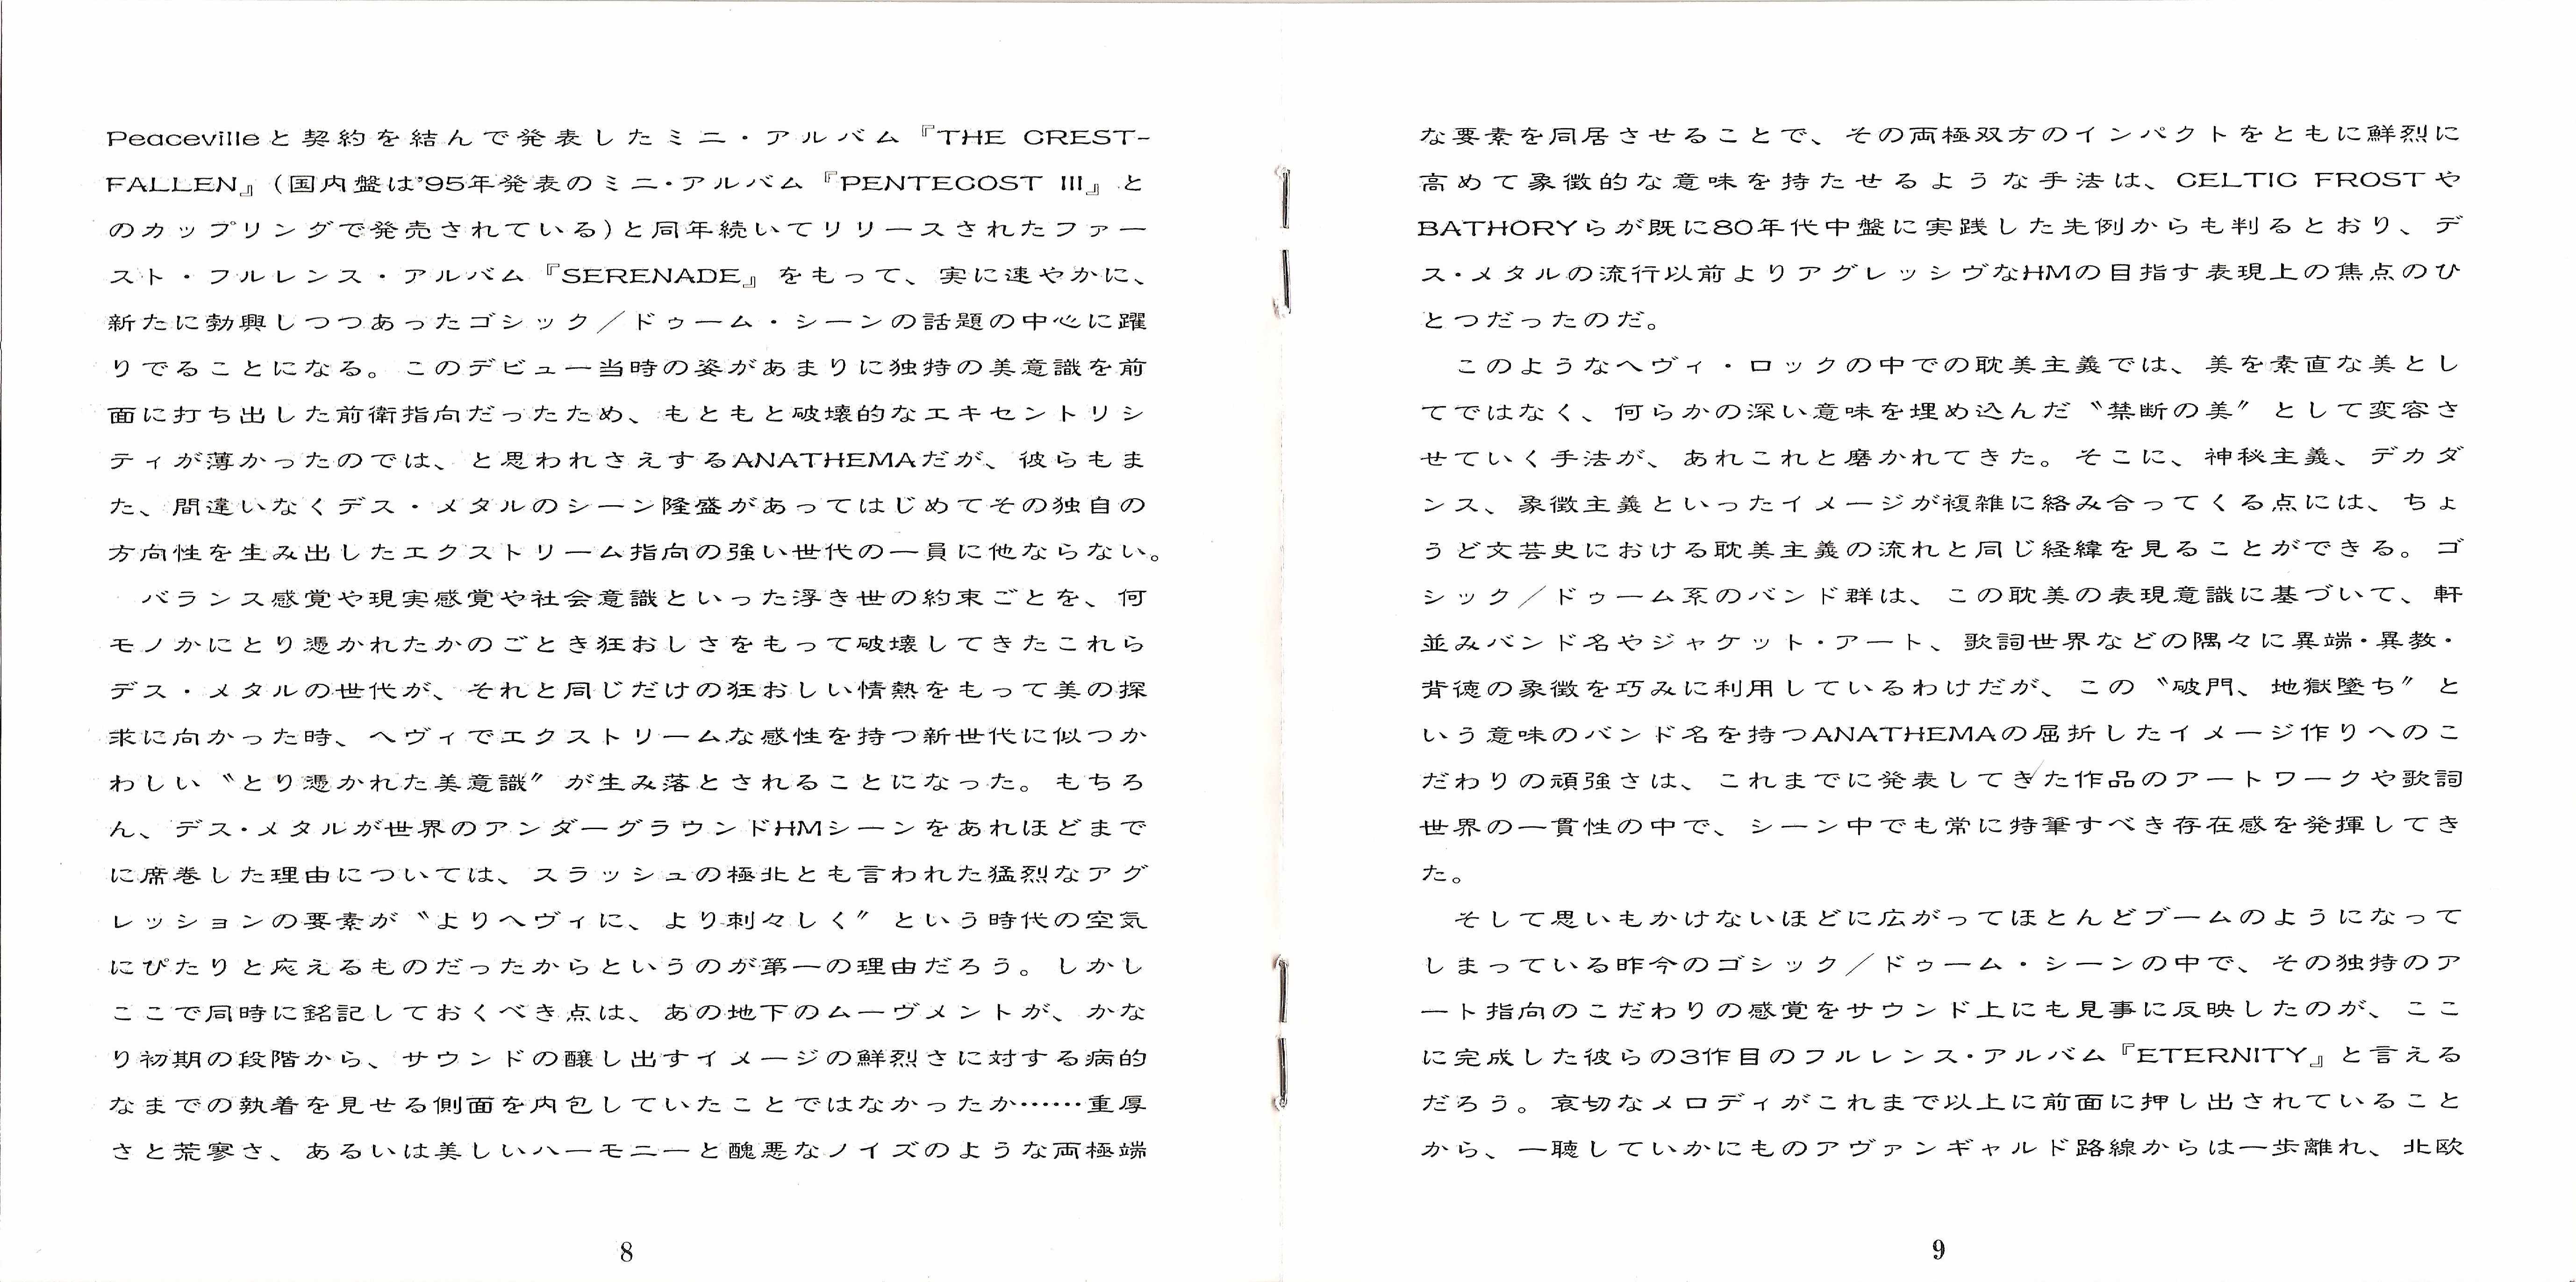 Peacevilleと契約を結んで発表したミニ・アルバム『THE CREST-
FALLEN』(国内盤は'95年発表のミニ・アルバム『PENTECOST III』と
のカップリングで発売されている)と同年続いてリリースされたファー
スト・フルレンス・アルバム『SERENADE』をもって、実に速やかに、
新たに勃興しつつあったゴシック／ドゥーム・シーンの話題の中心に躍
りでることになる。このデビュー当時の姿があまりに独特の美意識を前
面に打ち出した前衛指向だったため、もともと破壊的なエキセントリシ
ティが薄かったのでは、と思われさえするANATHEMAだが、彼らもま
た、間違いなくデス・メタルのシーン隆盛があってはじめてその独自の
方向性を生み出したエクストリーム指向の強い世代の一員に他ならない。
　バランス感覚や現実感覚や社会意識といった浮き世の約束ごとを、何
モノかにとり憑かれたかのごとき狂おしさをもって破壊してきたこれら
デス・メタルの世代が、それと同じだけの狂おしい情熱をもって美の探
求に向かった時、ヘヴィでエクストリームな感性を持つ新世代に似つか
わしい〝とり憑かれた美意識〟が生み落とされることになった。もちろ
ん、デス・メタルが世界のアンダーグラウンドHMシーンをあれほどまで
に席巻した理由については、スラッシュの極北とも言われた猛烈なアグ
レッションの要素が〝よりヘヴィに、より刺々しく〟という時代の空気
にぴたりと応えるものだったからというのが第一の理由だろう。しかし
ここで同時に銘記しておくべき点は、あの地下のムーヴメントが、かな
り初期の段階から、サウンドの醸し出すイメージの鮮烈さに対する病的
なまでの執着を見せる側面を内包していたことではなかったか……重厚
さと荒寥さ、あるいは美しいハーモニーと醜悪なノイズのような両極端
8
な要素を同居させることで、その両極双方のインパクトをともに鮮烈に
高めて象徴的な意味を持たせるような手法は、CELTIC FROSTや
BATHORYらが既に80年代中盤に実践した先例からも判るとおり、デ
ス・メタルの流行以前よりアグレッシヴなHMの目指す表現上の焦点のひ
とつだったのだ。
　このようなヘヴィ・ロックの中での耽美主義では、美を素直な美とし
てではなく、何らかの深い意味を埋め込んだ〝禁断の美〟として変容さ
せていく手法が、あれこれと磨かれてきた。そこに、神秘主義、デカダ
ンス、象徴主義といったイメージが複雑に絡み合ってくる点には、ちょ
うど文芸史における耽美主義の流れと同じ経緯を見ることができる。ゴ
シック／ドゥーム系のバンド群は、この耽美の表現意識に基づいて、軒
並みバンド名やジャケット・アート、歌詞世界などの隅々に異端・異教・
背徳の象徴を巧みに利用しているわけだが、この〝破門、地獄墜ち〟と
いう意味のバンド名を持つANATHEMAの屈折したイメージ作りへのこ
だわりの頑強さは、これまでに発表してきた作品のアートワークや歌詞
世界の一貫性の中で、シーン中でも常に特筆すべき存在感を発揮してき
た。
　そして思いもかけないほどに広がってほとんどブームのようになって
しまっている昨今のゴシック／ドゥーム・シーンの中で、その独特のア
ート指向のこだわりの感覚をサウンド上にも見事に反映したのが、ここ
に完成した彼らの3作目のフルレンス・アルバム『ETERNITY』と言える
だろう。哀切なメロディがこれまで以上に前面に押し出されていること
から、一聴していかにものアヴァンギャルド路線からは一歩離れ、北欧
9